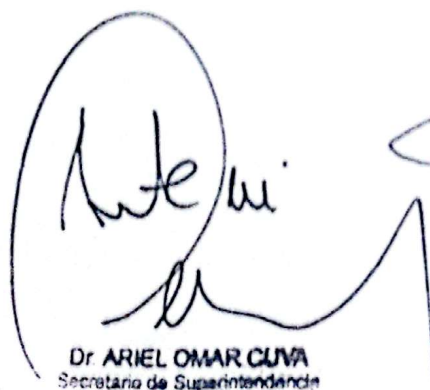 Ante mi
Dr. ARIEL OMAR CUVA
Secretario de Superintendencia